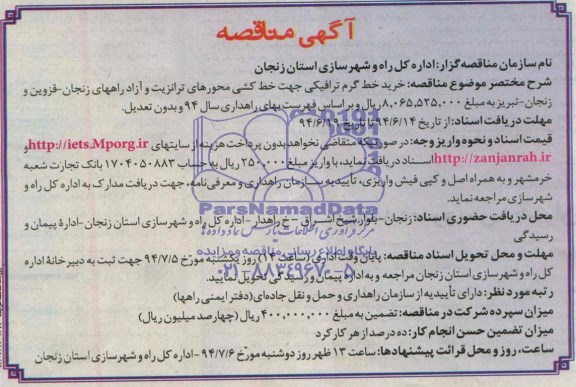 آگهی مناقصه
نام سازمان مناقصه‌گزار: اداره کل راه و شهرسازی استان زنجان
شرح مختصر موضوع مناقصه: خرید خط گرم ترافیکی جهت خط کشی محورهای ترانزیت و آزاد راههای زنجان-قزوین و
زنجان-تبریز به مبلغ ۸,۰۶۵,۵۲۵,۰۰۰ ریال و بر اساس فهرست بهای راهداری سال ۹۴ و بدون تعدیل.
مهلت دریافت اسناد: از تاریخ ۹۴/۶/۱۴ تا تاریخ ۹۴/۶/۱۹
قیمت اسناد و نحوه واریز وجه: در صورتیکه متقاضی نخواهد بدون پرداخت هزینه از سایتهای http://iets.Mporg.ir و
http://zanjanrah.ir اسناد دریافت نماید، با واریز مبلغ ۲۵۰,۰۰۰ ریال به حساب ۱۷۰۴۰۵۰۸۸۳ بانک تجارت شعبه
خرمشهر و به همراه اصل و کپی فیش واریزی، تأییدیه سازمان راهداری و معرفی‌نامه، جهت دریافت مدارک به اداره کل راه و
شهرسازی مراجعه نماید.
محل دریافت حضوری اسناد: زنجان-بلوار شیخ اشراق - خ راهدار - اداره کل راه و شهرسازی استان زنجان-ادارهٔ پیمان و
رسیدگی
مهلت و محل تحویل اسناد مناقصه: پایان وقت اداری (ساعت ۱۴) روز یکشنبه مورخ ۹۴/۷/۵ جهت ثبت به دبیرخانهٔ اداره
کل راه و شهرسازی استان زنجان مراجعه و به اداره پیمان و رسیدگی تحویل نمایید.
رتبه مورد نظر: دارای تأییدیه از سازمان راهداری و حمل و نقل جاده‌ای (دفتر ایمنی راهها)
میزان سپرده شرکت در مناقصه: تضمین به مبلغ ۴۰۰,۰۰۰,۰۰۰ ریال (چهارصد میلیون ریال)
میزان تضمین حسن انجام کار: ده درصد از هر کارکرد
ساعت، روز و محل قرائت پیشنهادها: ساعت ۱۳ ظهر روز دوشنبه مورخ ۹۴/۷/۶ -اداره کل راه و شهرسازی استان زنجان
ParsNamadData
مرکز فرآوری اطلاعات پارس نماد داده‌ها
پایگاه اطلاع رسانی مناقصه و مزایده
۰۲۱-۸۸۳۴۹۶۷۰-۵